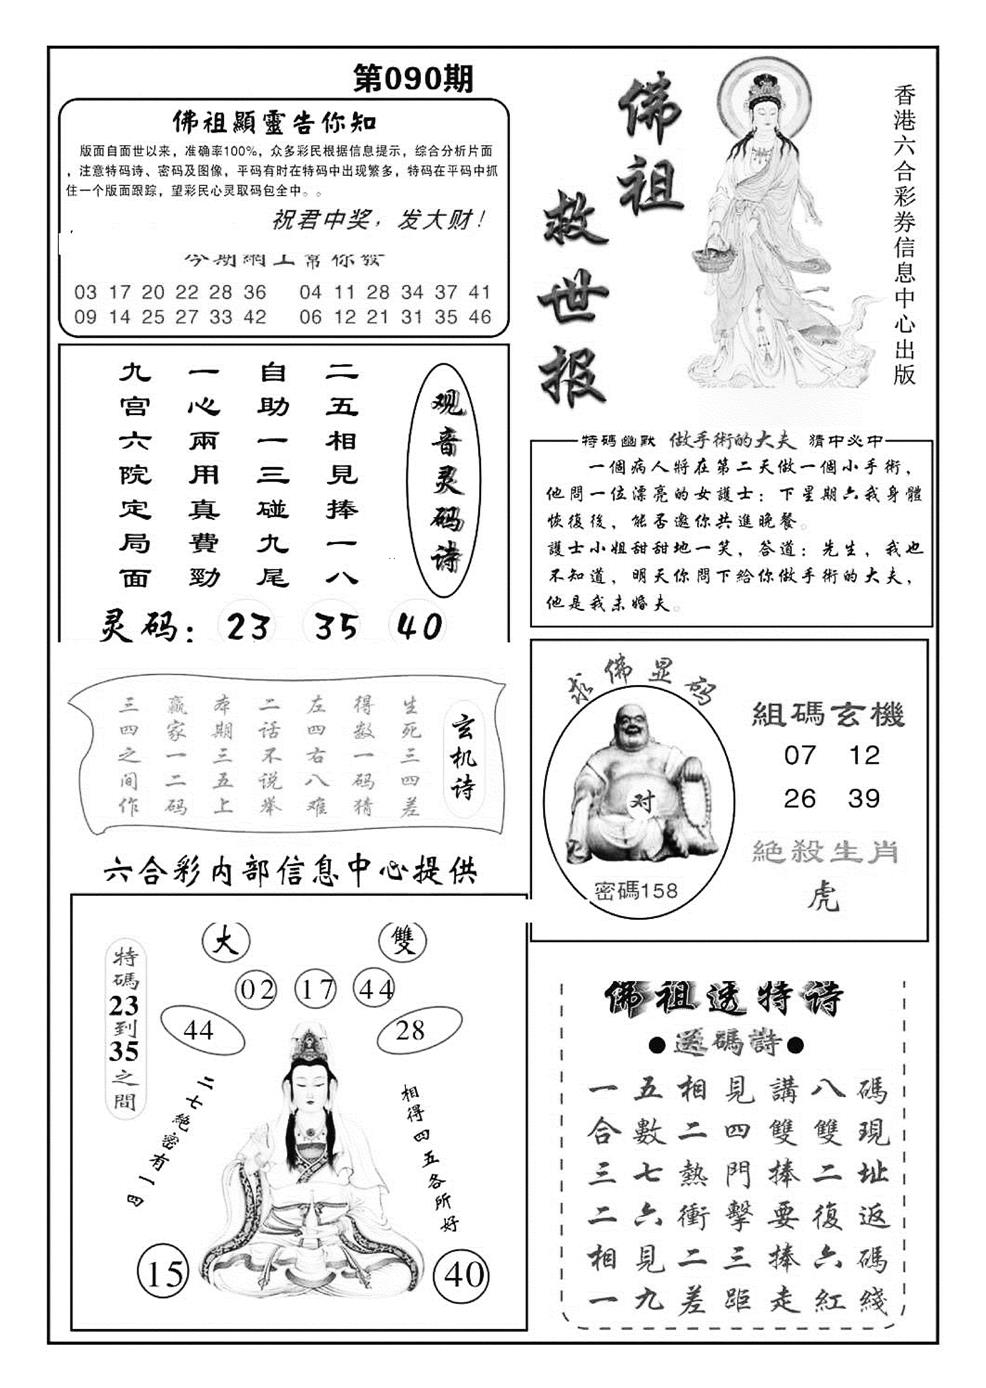 第090期
佛祖顯靈告你知
版面自面世以来，准确率100%，众多彩民根据信息提示，综合分析片面
，注意特码诗、密码及图像，平码有时在特码中出现繁多，特码在平码中抓
住一个版面跟踪，望彩民心灵取码包全中。。
祝君中奖，发大财！
今期網上幫你發
03 17 20 22 28 36 04 11 28 34 37 41
09 14 25 27 33 42 06 12 21 31 35 46
佛祖
救世报
香港六合彩券信息中心出版
观音灵码诗
二五相見捧一八
自助一三碰九尾
一心兩用真費勁
九宫六院定局面
灵码：23 35 40
特碼幽默 做手術的大夫 猜中必中
一個病人將在第二天做一個小手術，
他問一位漂亮的女護士：下星期六我身體
恢復後，能否邀你共進晚餐。
護士小姐甜甜地一笑，答道：先生，我也
不知道，明天你問下給你做手術的大夫，
他是我未婚夫。
玄机诗
生死三四差
得数一码猜
左四右八难
二话不说举
本期三五上
赢家一二码
三四之间作
六合彩内部信息中心提供
求佛显码
对
密碼158
組碼玄機
07 12
26 39
絕殺生肖
虎
特碼23到35之間
大 雙
02 17 44
44 28
二七絕密有一四
相得四五各所好
15 40
佛祖透特诗
●送碼詩●
一五相見講八碼
合數二四雙雙現
三七熱門捧二址
二六衝擊要復返
相見二三捧六碼
一九差距走紅綫